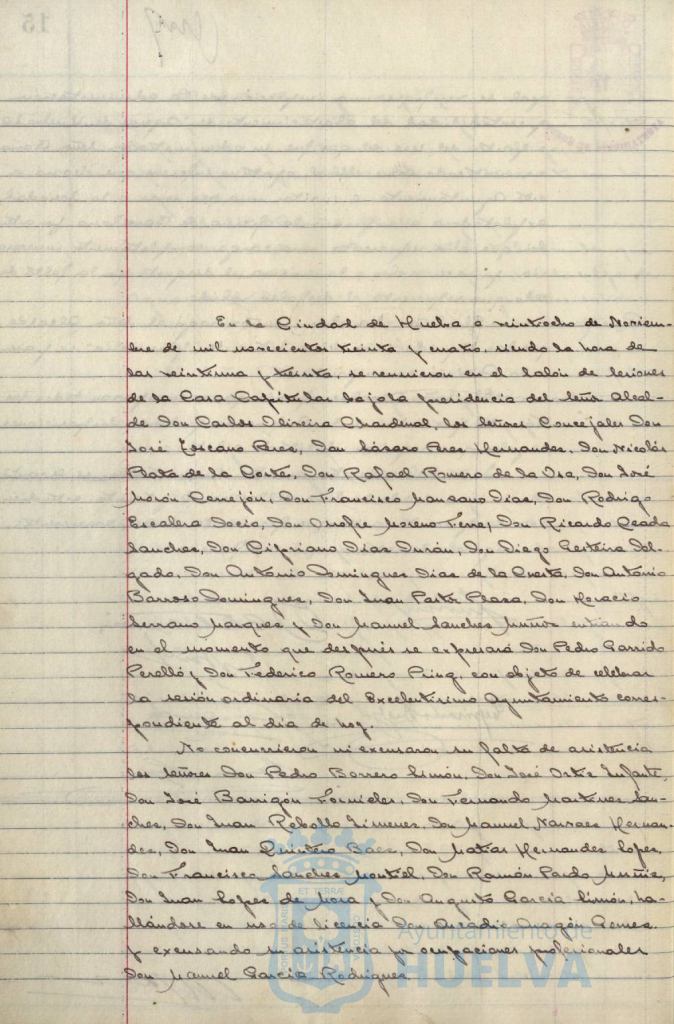 En la Ciudad de Huelva a veintiocho de Noviem-
bre de mil novecientos treinta y cuatro, siendo la hora de
las veintiuna y treinta, se reunieron en el Salón de Sesiones
de la Casa Capitular bajo la presidencia del Señor Alcal-
de Don Carlos Oliveira Chardenal, los Señores Concejales Don
José Toscano Pérez, Don Lázaro Pérez Hernandez, Don Nicolás
Plata de la Corte, Don Rafael Romero de la Osa, Don José
Morón Cerrejón, Don Francisco Manzano Diaz, Don Rodrigo
Escalera Docio, Don Onofre Moreno Terre, Don Ricardo Ceada
Sanchez, Don Cipriano Diaz Durán, Don Diego Gesteira Del-
gado, Don Antonio Dominguez Diaz de la Cuesta, Don Antonio
Barroso Dominguez, Don Juan Pastor Plaza, Don Horacio
Serrano Marquez y Don Manuel Sanchez Muñoz entrando
en el momento que después se expresará Don Pedro Garrido
Perelló y Don Federico Romero con objeto de celebrar
la sesión ordinaria del Excelentísimo Ayuntamiento corres-
pondiente al dia de hoy.
No concurrieron ni excusaron su falta de asistencia
los Señores Don Pedro Borrero Limón, Don José Ortiz Infante,
Don José Barrigón Fornieles, Don Fernando Martinez San-
chez, Don Juan Rebollo Jimenez, Don Manuel Narvaez Hernan-
dez, Don Juan Quintero Baez, Don Matias Hernandez Lopez,
Don Francisco Sanchez Montiel, Don Ramón Pardo Muñiz,
Don Juan Lopez de Mora y Don Augusto Garcia Limón, ha-
llándose en uso de licencia Don Arcadio Aragón Gomez
y excusando su asistencia por ocupaciones profesionales
Don Manuel Garcia Rodriguez.
Ayuntamiento de
HUELVA